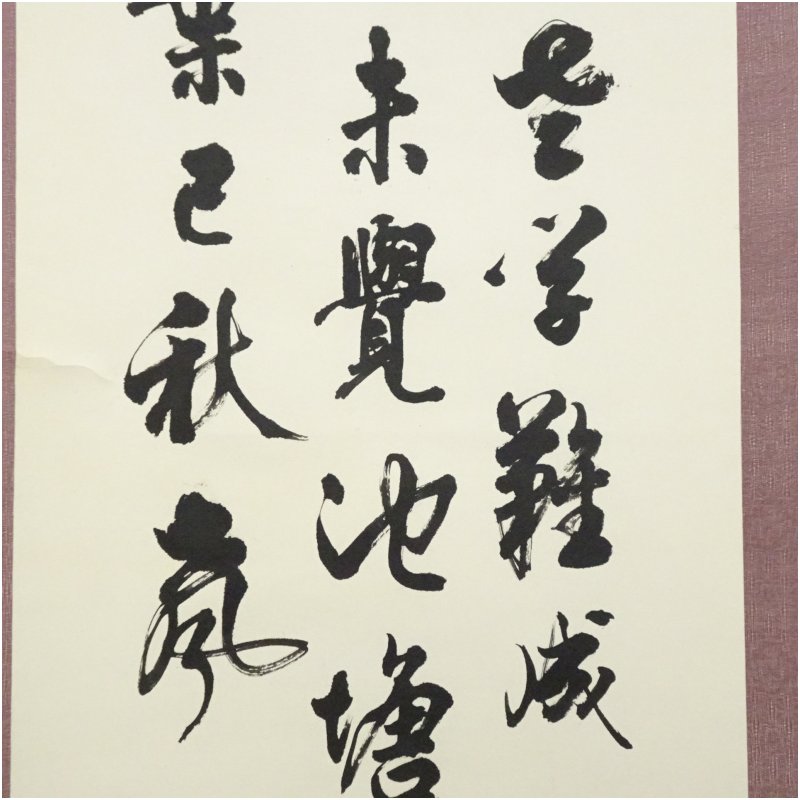 老学難成
未覺池塘
葉已秋聲